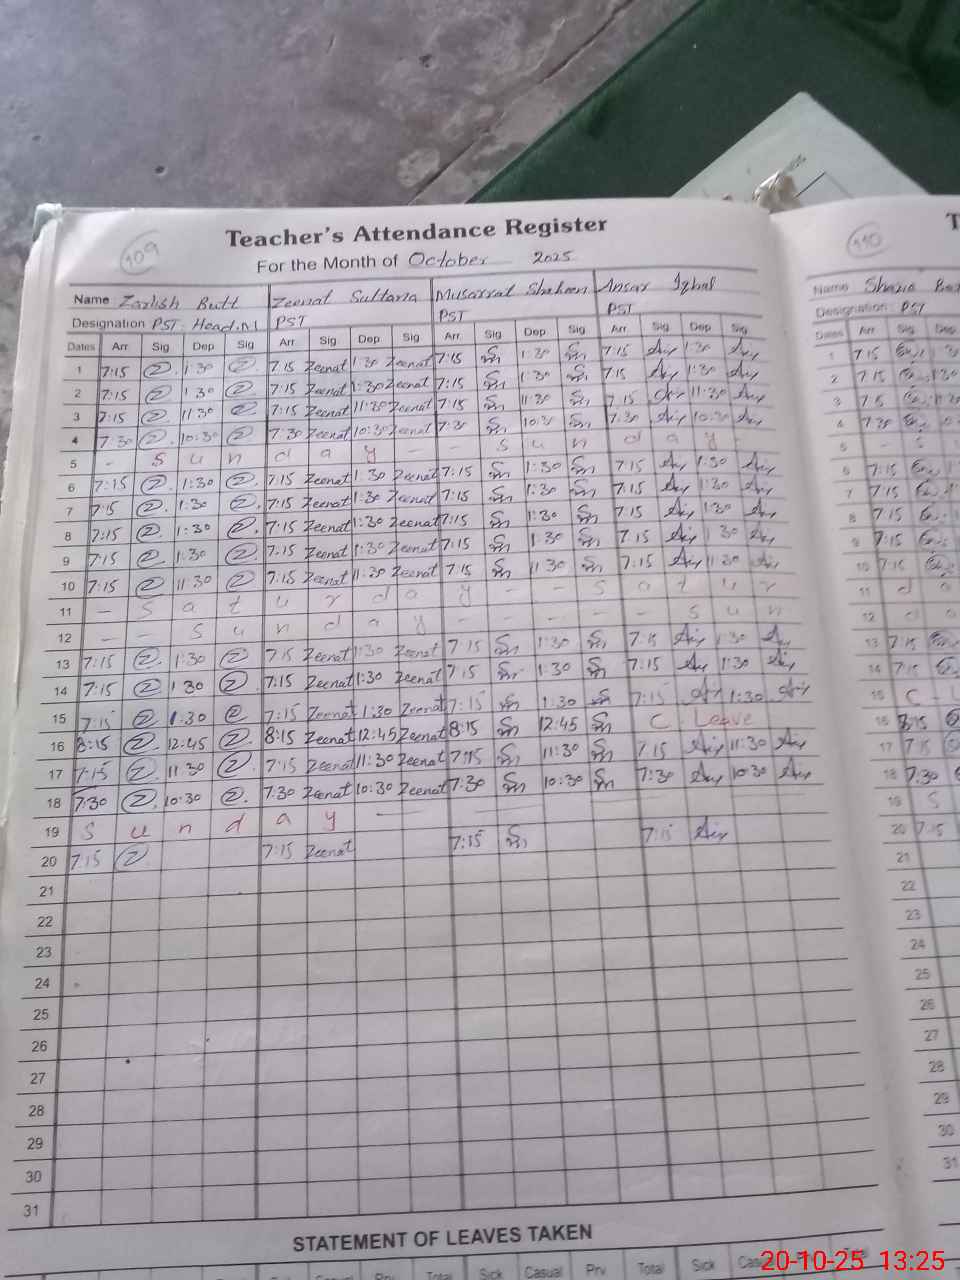 109
Teacher's Attendance Register
110
For the Month of October 2025
Name Zarlish Butt Zeenat Sultana Musarrat Shaheen Ansar Iqbal Name
Designation PST. Head.M PST PST PST Designation PST
Dates Arr Sig Dep Sig Arr Sig Dep Sig Arr Sig Dep Sig Arr Sig Dep Sig Dates Arr Sig Dep
1 7:15 1:30 7:15 Zeenat 1:30 Zeenat 7:15 1:30 7:15 1:30 1 7:15
2 7:15 1:30 7:15 Zeenat 1:30 Zeenat 7:15 1:30 7:15 1:30 2 7:15
3 7:15 11:30 7:15 Zeenat 11:30 Zeenat 7:15 11:30 7:15 11:30 3 7:15
4 7:30 10:30 7:30 Zeenat 10:30 Zeenat 7:30 10:30 7:30 10:30 4 7:30
5 - S u n d a y - - S u n d a y - 5 - S
6 7:15 1:30 7:15 Zeenat 1:30 Zeenat 7:15 1:30 7:15 1:30 6 7:15
7 7:15 1:30 7:15 Zeenat 1:30 Zeenat 7:15 1:30 7:15 1:30 7 7:15
8 7:15 1:30 7:15 Zeenat 1:30 Zeenat 7:15 1:30 7:15 1:30 8 7:15
9 7:15 1:30 7:15 Zeenat 1:30 Zeenat 7:15 1:30 7:15 1:30 9 7:15
10 7:15 11:30 7:15 Zeenat 11:30 Zeenat 7:15 11:30 7:15 11:30 10 7:15
11 - S a t u r d a y - - S a t u r 11 d a
12 - - S u n d a y - - - - - S u n 12 d a
13 7:15 1:30 7:15 Zeenat 1:30 Zeenat 7:15 1:30 7:15 1:30 13 7:15
14 7:15 1:30 7:15 Zeenat 1:30 Zeenat 7:15 1:30 7:15 1:30 14 7:15
15 7:15 1:30 7:15 Zeenat 1:30 Zeenat 7:15 1:30 7:15 1:30 15 C - L
16 8:15 12:45 8:15 Zeenat 12:45 Zeenat 8:15 12:45 C. Leave 16 8:15
17 7:15 11:30 7:15 Zeenat 11:30 Zeenat 7:15 11:30 7:15 11:30 17 7:15
18 7:30 10:30 7:30 Zeenat 10:30 Zeenat 7:30 10:30 7:30 10:30 18 7:30
19 S u n d a y - 19 S
20 7:15 7:15 Zeenat 7:15 7:15 20 7:15
21 21
22 22
23 23
24 24
25 25
26 26
27 27
28 28
29 29
30 30
31 31
STATEMENT OF LEAVES TAKEN
Casual Prv Total Sick Casual Prv Total Sick
20-10-25 13:25